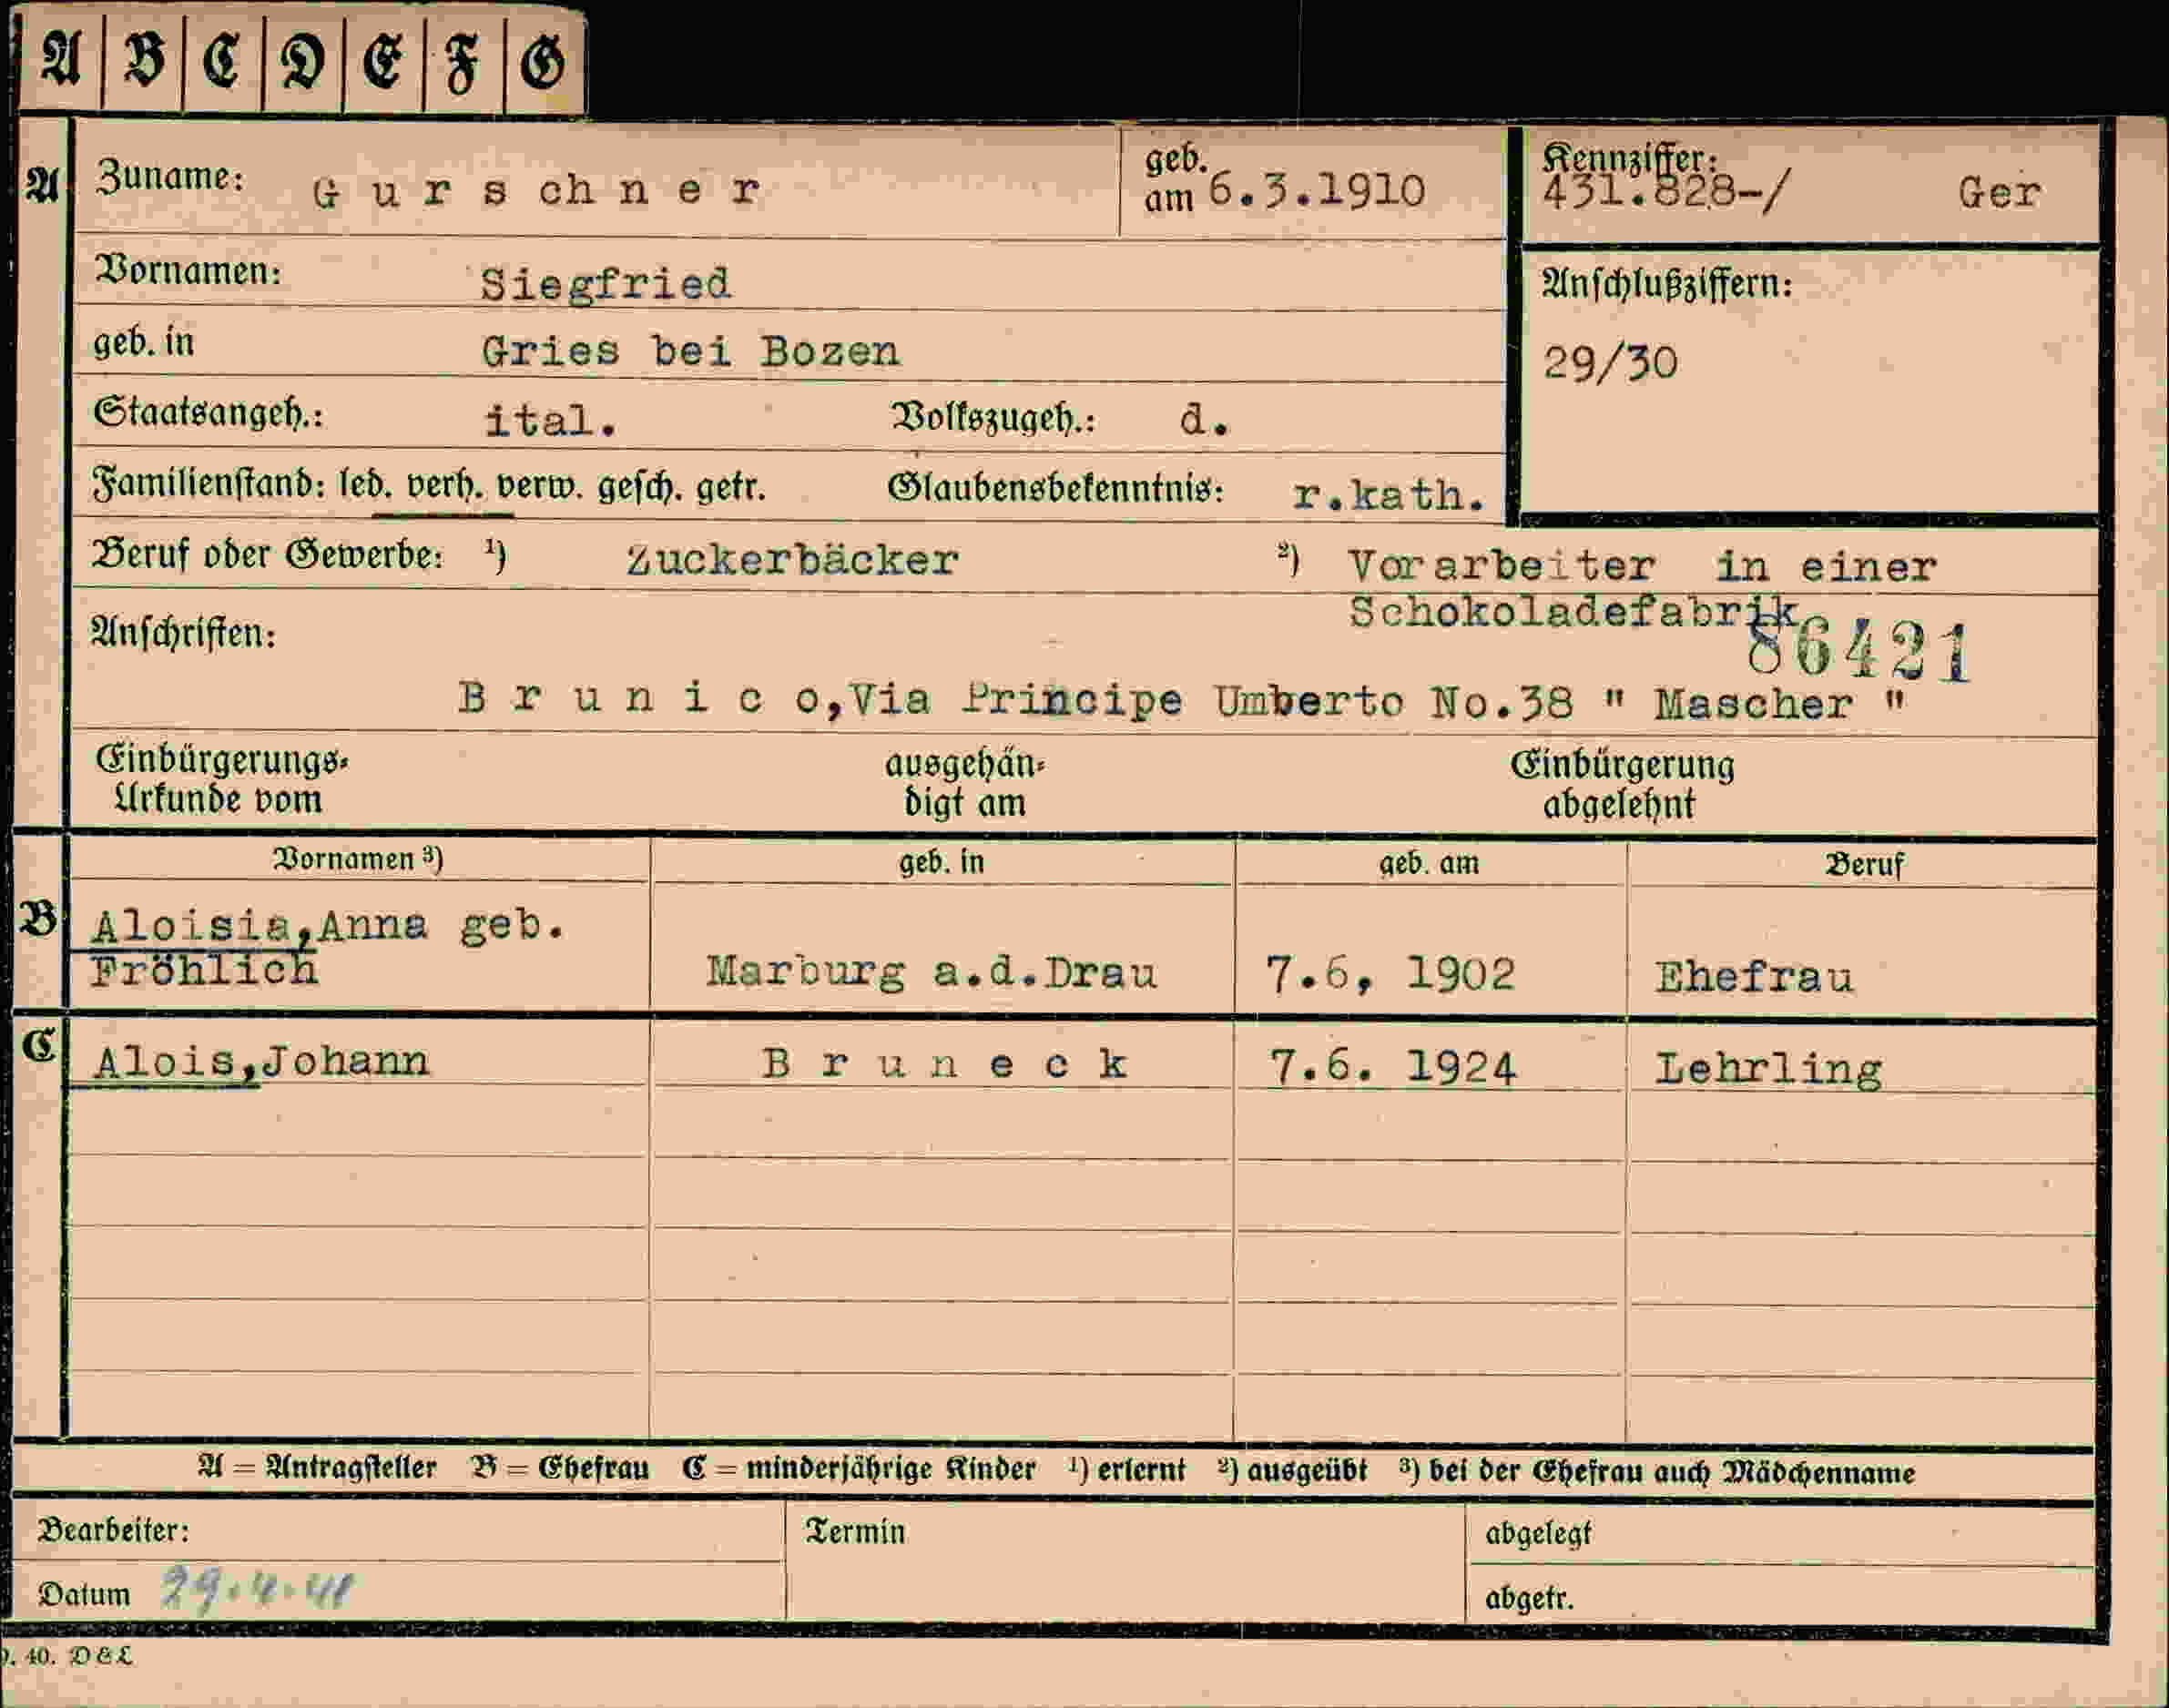 A B C D E F G
A Zuname: Gurschner geb. am 6.3.1910 Kennziffer: 431.828-/ Ger
Vornamen: Siegfried Anschlußziffern:
geb. in Gries bei Bozen 29/30
Staatsangeh.: ital. Volkszugeh.: d.
Familienstand: led. verh. verw. gesch. getr. Glaubensbekenntnis: r.kath.
Beruf oder Gewerbe: ¹) Zuckerbäcker ²) Vorarbeiter in einer
Schokoladefabrik
Anschriften: 86421
Brunico,Via Principe Umberto No.38 " Mascher "
Einbürgerungs- ausgehän- Einbürgerung
Urkunde vom digt am abgelehnt
Vornamen ³) geb. in geb. am Beruf
B Aloisia,Anna geb.
Fröhlich Marburg a.d.Drau 7.6, 1902 Ehefrau
C Alois,Johann Bruneck 7.6. 1924 Lehrling
A = Antragsteller B = Ehefrau C = minderjährige Kinder ¹) erlernt ²) ausgeübt ³) bei der Ehefrau auch Mädchenname
Bearbeiter: Termin abgelegt
Datum 29.4.41 abgetr.
40. D & L